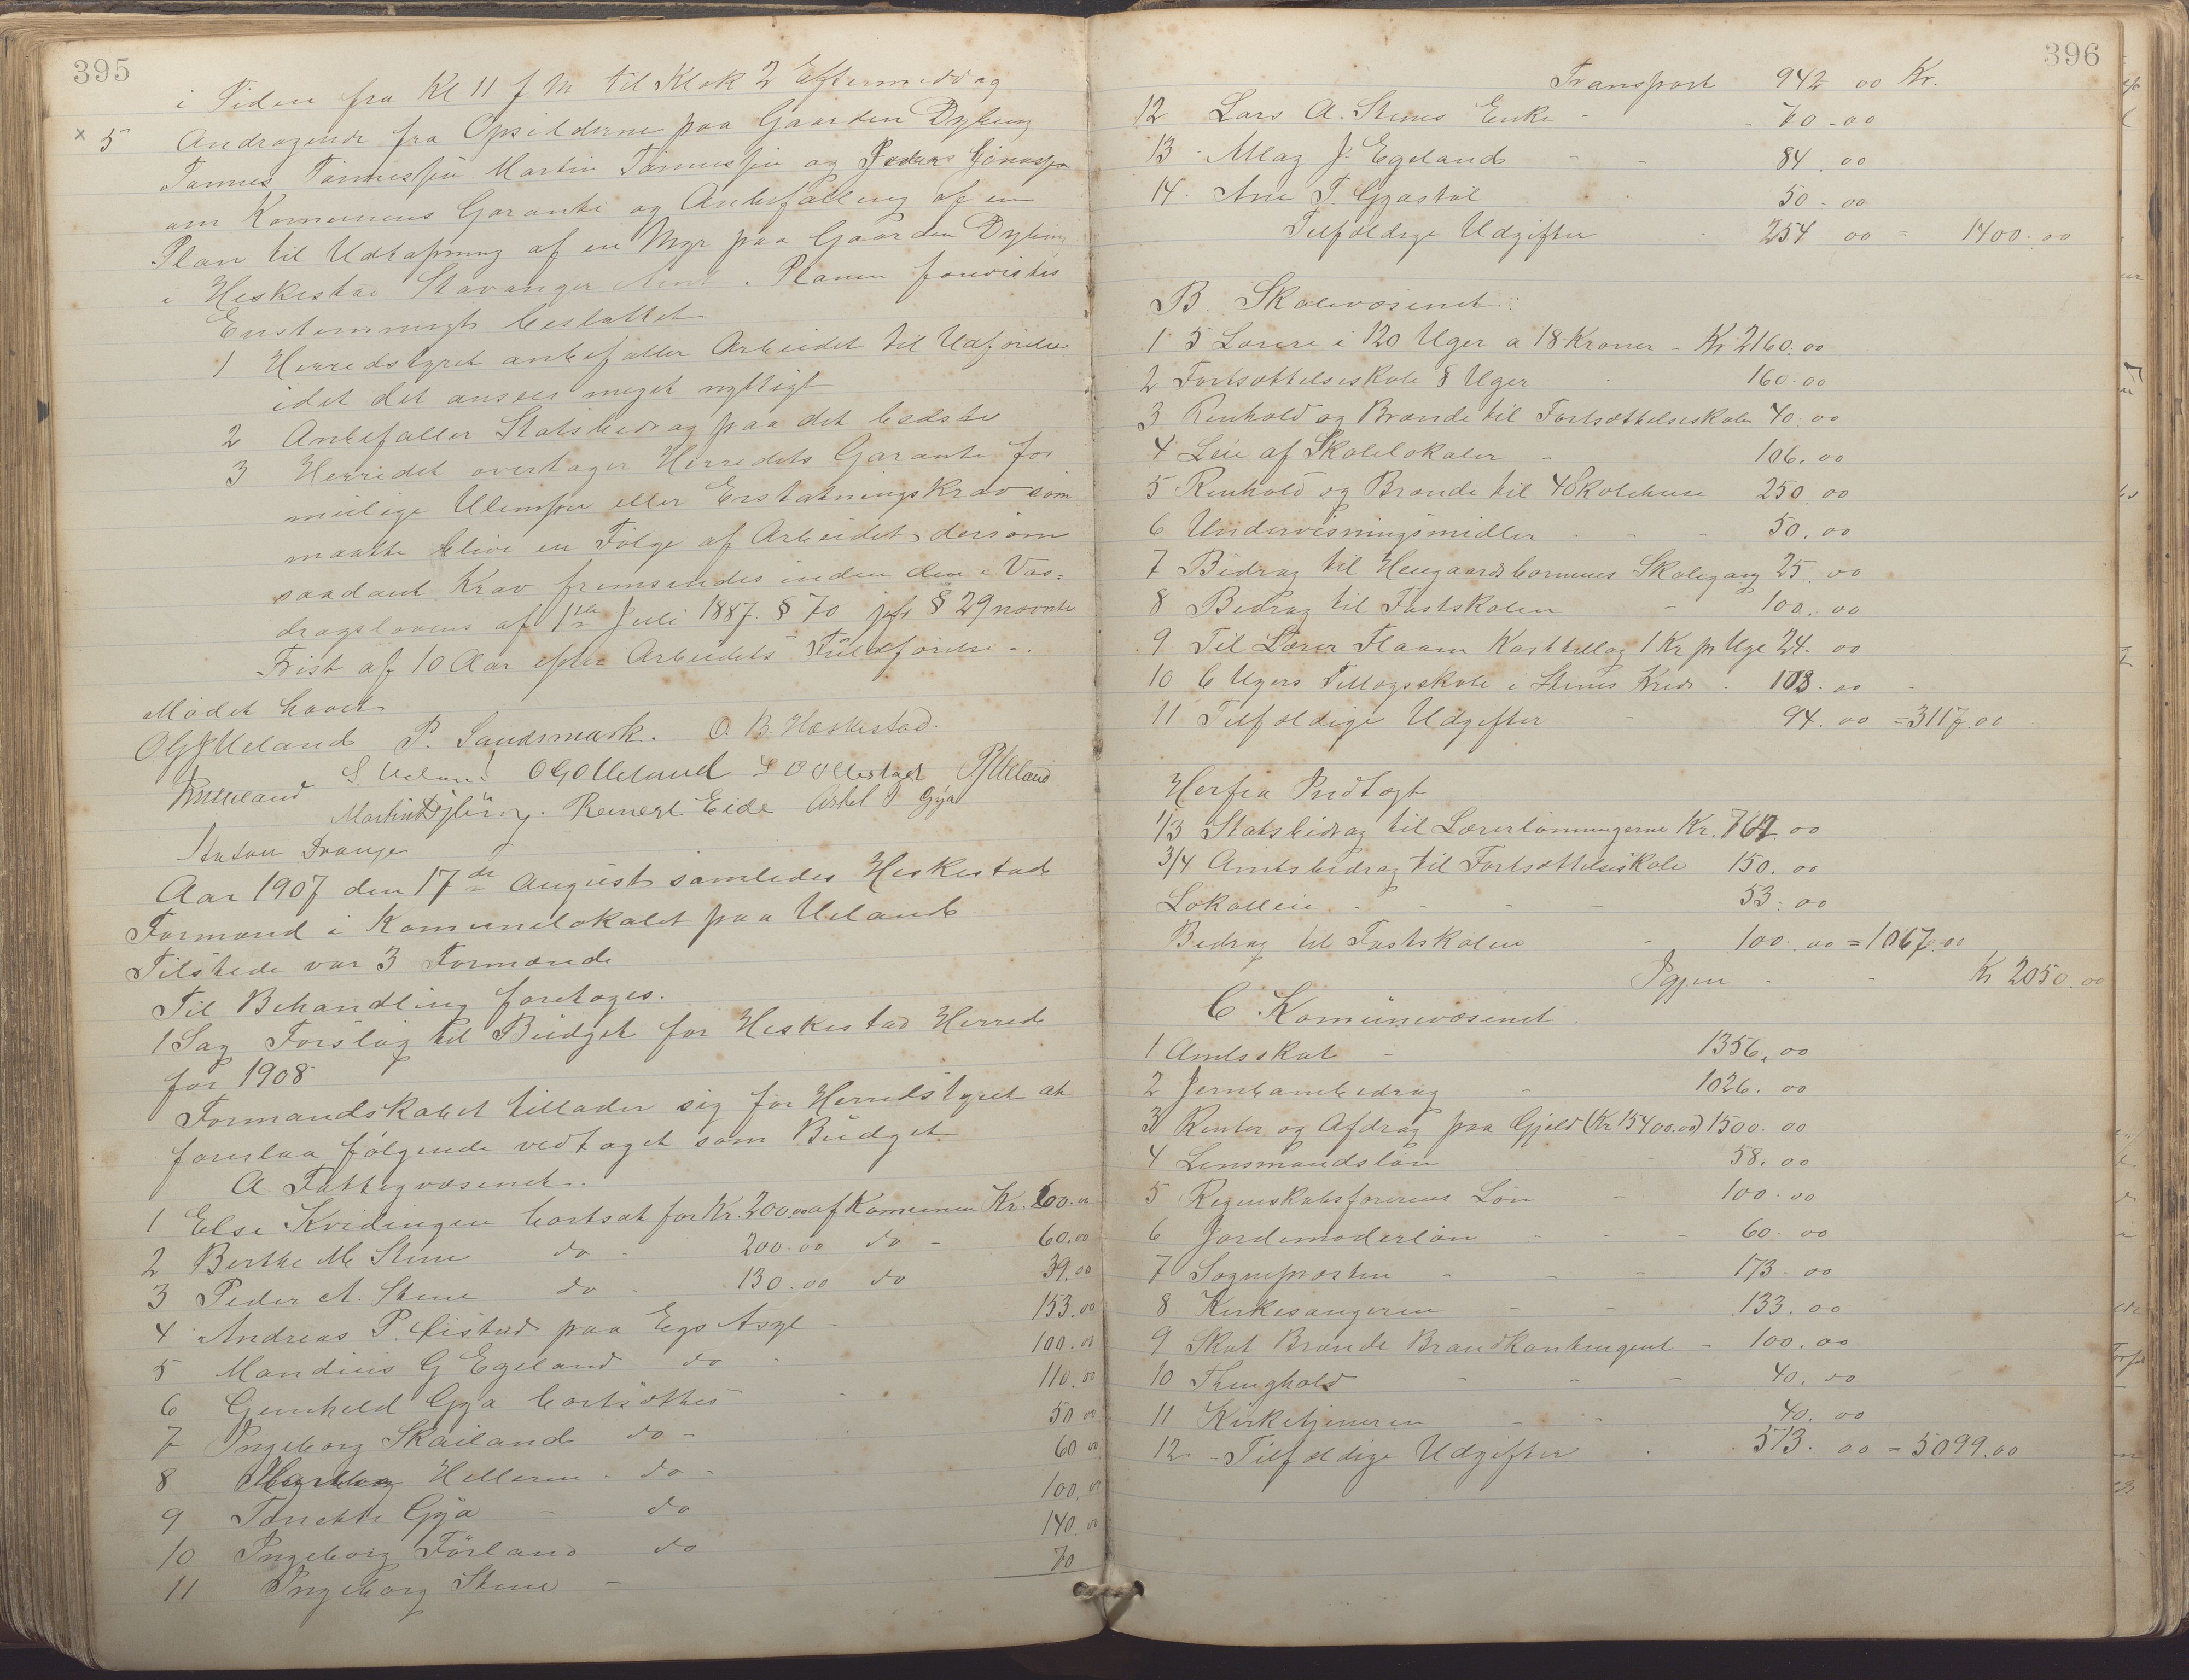 395
i Tiden fra Kl 11 f M til Klok 2 Eftermiddag
x 5 Andragende fra Opsidderne paa Gaarden Dybing
Tønnes Tønnessen Martin Tønnessen og Peder Jonassen
om Komunens Garanti og Anbefalling af en
Plan til Udtapning af en Myr paa Gaarden Dybing
i Heskestad Stavanger Amt. Planen foreviстes
Enstemmigt besluttet
1 Herredstyret anbefaller Arbeidet til Udførelse
idet det ansees meget nyttigt
2 Anbefaller Statsbidrag paa det bedste
3 Herredet overtager Herredets Garanti for
mulige Ulemper eller Erstatningskrav som
maatte blive en Følge af Arbeidet dersom
saadant Krav fremsendes inden den i Vas-
dragslovens af 1ste Juli 1887 § 70 jofr § 29 nævnte
Frist af 10 Aar efter Arbeidets Fuldførelse -.
Mødet hævet
O G Ueland P. Sandsmark. O. B. Heskestad.
S. Ueland O G Ueland P Ueland
Martin Dybing. Reinert Eide Askel P Gya
Anton Drange
Aar 1907 den 17de August samledes Heskestad
Formænd i Komunelokalet paa Ueland
Tilstede var 3 Formænd
Til Behandling foretoges.
1 Sag Forslag til Budget for Heskestad Herred
for 1908
Formandskabet tillader sig for Herredstyret at
foreslaa følgende vedtaget som Budget
A. Fattigvæsenet.
1 Else Kvidingen bortsat for Kr. 200.00 af Komunen Kr. 100.00
2 Berthe M. Stene do - 200.00 do - 60.00
3 Peder A. Stene do - 130.00 do 39.00
4 Andreas P. Eistad paa Egs Asyl - 153.00
5 Mandius G Egeland do - 100.00
6 Gunhild Gya bortsættes - 110.00
7 Ingeborg Skailand do - 50 00
8 Helleren - do - 60 00
9 Tønette Gya - do 100.00
10 Ingeborg Førland do 140.00
11 Ingeborg Stene - 70
396
Transport 942 00 Kr.
12 Lars A. Stenes Enke - 70-00
13 Allag J. Egeland - - 84.00
14. Ane T. Gyastøl 50-00
Tilfældige Udgifter - 254 00 = 1400.00
B. Skolevæsenet:
1 5 Lærere i 120 Uger a 18 Kroner - Kr 2160.00
2 Fortsættelseskole 8 Uger 160.00
3 Renhold og Brænde til Fortsættelseskolen 40.00
4 Leie af Skolelokaler - 106.00
5 Renhold og Brænde til 4 Skolehuse 250.00
6 Undervisningsmidler - - - 50.00
7 Bidrag til Heiegaardsbørnenes Skolegang 25.00
8 Bidrag til Fastskolen - 100.00
9 Til Lærer Flaam Kosttillæg 1 Kr pr Uge 24.00
10 6 Ugers Tillægsskole i Stenes Kreds - 108.00 -
11 Tilfældige Udgifter - 94.00 = 3117.00
Herfra Indtægt
1/3 Statsbidrag til Lærerlønningerne Kr. 764.00
3/4 Amtsbidrag til Fortsættelseskole 150.00
Lokalleie - - - - 53.00
Bidrag til Fastskolen - 100.00 = 1067.00
Igjen - - Kr 2050.00
C. Komunevæsenet.
1 Amtsskat - 1356.00
2 Jernbanebidrag - 1026.00
3 Renter og Afdrag paa Gjeld (Kr 15400.00) 1500.00
4 Lensmandsløn - - 58.00
5 Regnskabsførerens Løn - 100.00
6 Jordemoderløn - - - 60.00
7 Sognepræsten - - - 173.00
8 Kirkesangeren - - 133.00
9 Skat Brænde Brandkontingent - 100.00
10 Thinghold - - - 40.00
11 Kirketjeneren - - 40.00
12 - Tilfældige Udgifter . 513.00 = 5099.00